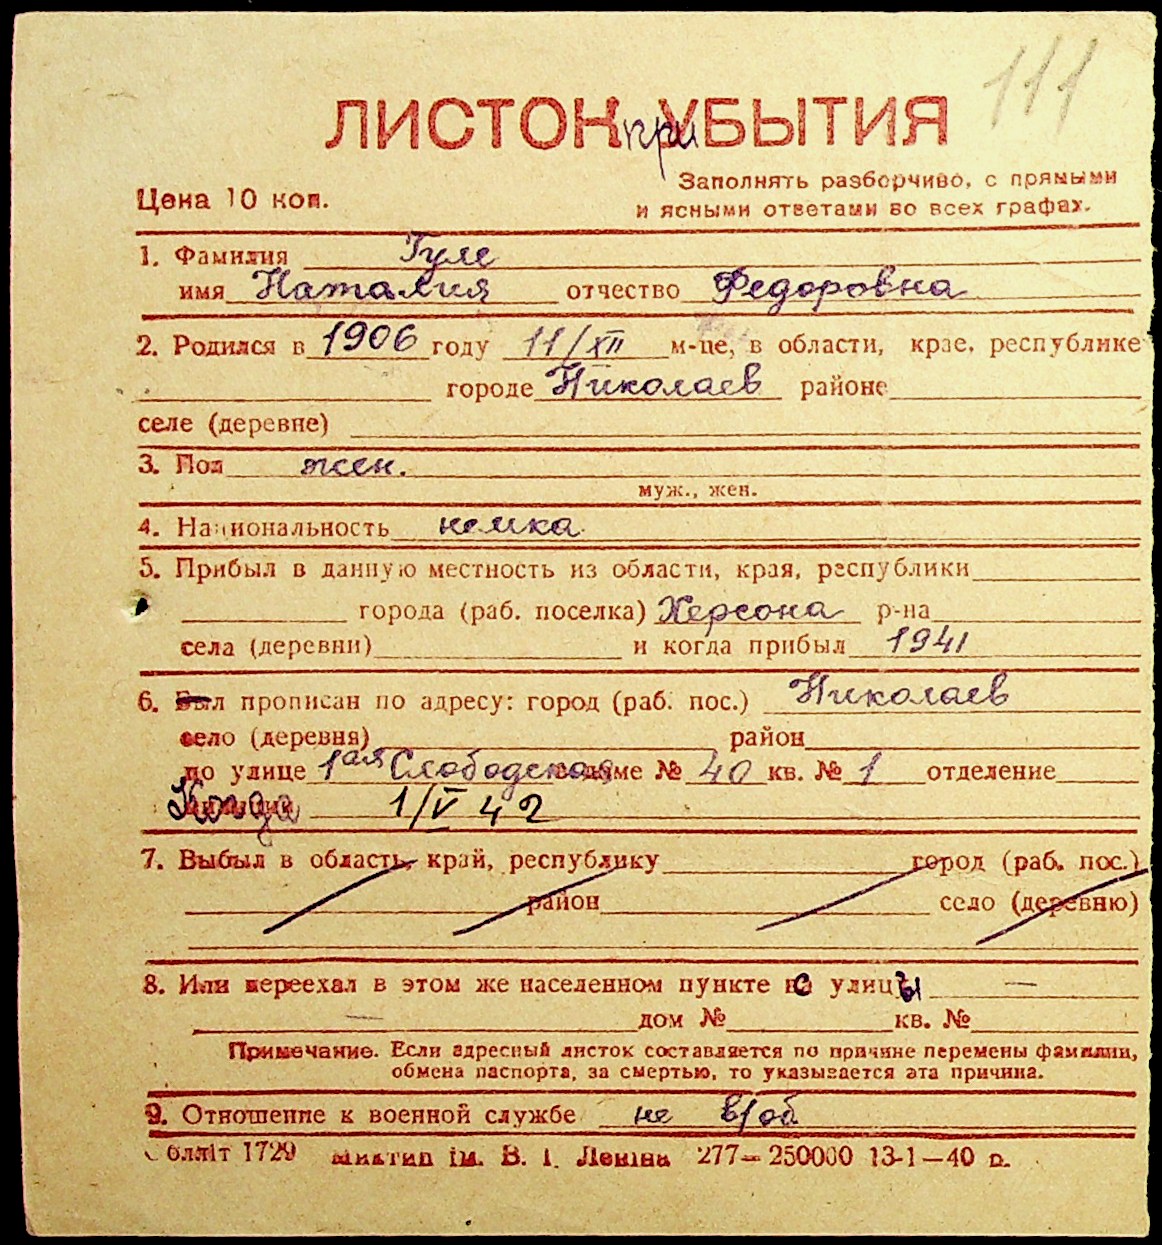 111
ЛИСТОК при УБЫТИЯ
Заполнять разборчиво, с прямыми
Цена 10 коп.
и ясными ответами во всех графах.
1. Фамилия Гуле
имя Наталия отчество Федоровна
2. Родился в 1906 году 11/XII м-це, в области, крае, республике
городе Николаев районе
селе (деревне)
3. Пол жен.
муж., жен.
4. Национальность немка
5. Прибыл в данную местность из области, края, республики
города (раб. поселка) Херсона р-на
села (деревни) и когда прибыл 1941
6. Был прописан по адресу: город (раб. пос.) Николаев
село (деревня) район
по улице 1ая Слободская в доме № 40 кв. № 1 отделение
Когда 1/V 42
7. Выбыл в область, край, республику город (раб. пос.)
район село (деревню)
8. Или переехал в этом же населенном пункте с улицы —
— дом № кв. №
Примечание. Если адресный листок составляется по причине перемены фамилии,
обмена паспорта, за смертью, то указывается эта причина.
9. Отношение к военной службе не в/об
Облліт 1729 Миктип ім. В. І. Леніна 277—250000 13-1—40 р.